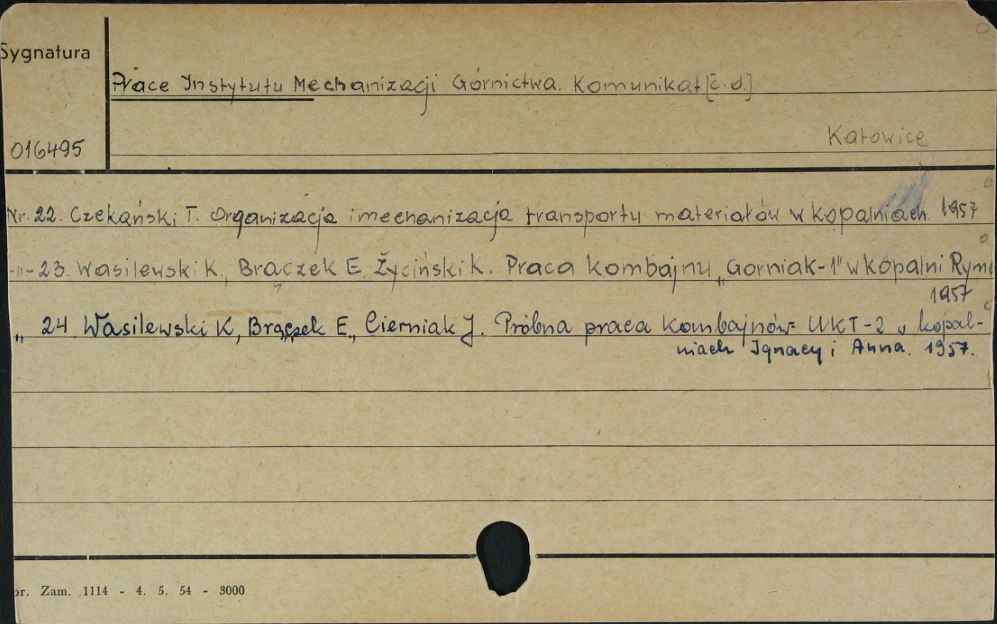 Sygnatura
Prace Instytutu Mechanizacji Górnictwa. Komunikat [c.d.]
Katowice
016495
Nr. 22. Czekański T. Organizacja i mechanizacja transportu materiałów w kopalniach 1957
-"- 23. Wasilewski K., Brączek E, Życiński K. Praca kombajnu „Gorniak-1" w kopalni Ryme
1957
„ 24 Wasilewski K, Brączek E., Cierniak J. Próbna praca kombajnów UKT-2 w kopal-
niach Ignacy i Anna. 1957.
or. Zam. 1114 - 4. 5. 54 - 3000